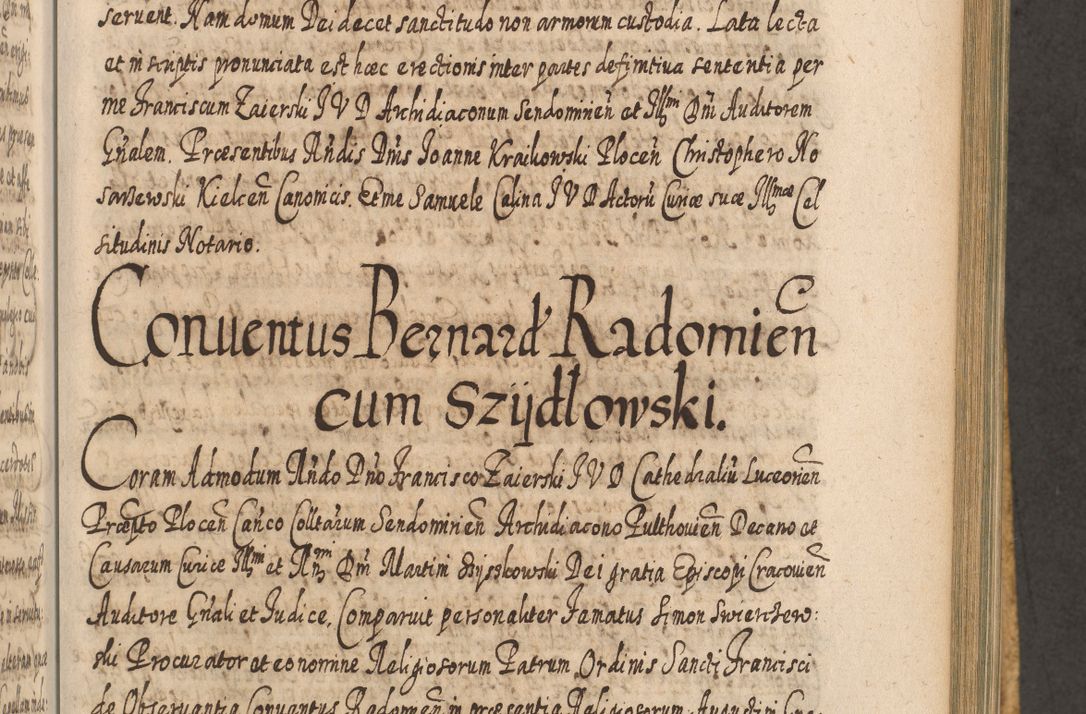 seruent. Nam domum Dei decet sanctitudo non armorum custodia. Lata lecta
et in scriptis pronunciata est hæc erectionis inter partes definitiua sententia per
me Franciscum Zaierski I V D Archidiaconum Sendomirień et Illm Dm̃ Auditorem
Gñalem. Præsentibus Rñdis Dñis Ioanne Kraikowski Plocen̄ Christophero No
sarzewski Kielcen̄ Canonicis. Et me Samuele Calina I V D Actorū Curiæ suæ Illmæ Cel
situdinis Notario.
Conuentus Bernard' Radomien̄
cum Szijdłowski.
Coram Admodum Rñdo Dño Francisco Zaierski I V D Cathedraliū Luceorien̄
Præpto Plocen̄ Cañco Colltarum Sendomirien̄ Archidiacono Pulthouien̄ Decano et
Causarum Curiæ Illm et Rm Dm̃ Martini Szyszkowski Dei gratia Episcopi Cracouien̄
Auditore Gñali et Iudice, Comparuit personaliter Famatus Simon Swierczew:
ski Procurator et eo nomine Religiosorum Patrum Ordinis Sancti Francisci
de Obseruantia Conuentus Radomien̄ in præsentia Religiosorum Augustini